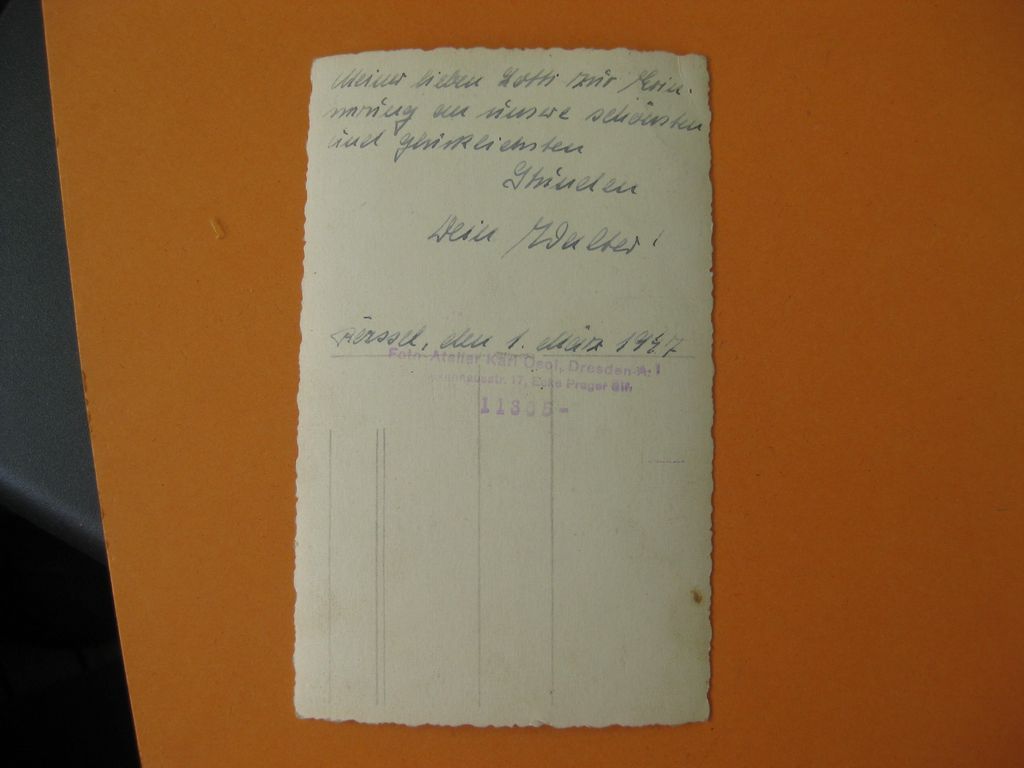 Meiner lieben Lotti zur Erin-
nerung an unsere schönsten
und glücklichsten
Stunden
Dein Walter!
den 1. März 1947
Foto-Atelier Karl Dresden-A. 1
17, Ecke Prager Str.